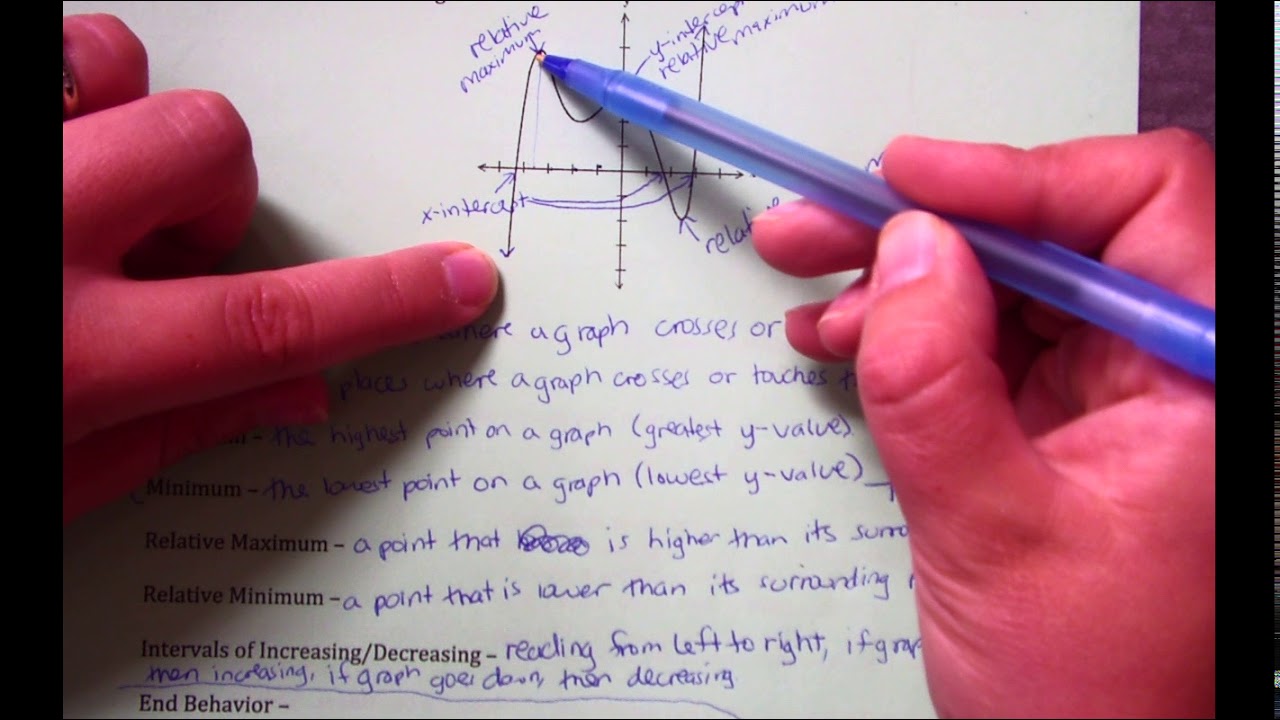 relative
maximum
y-intercept
relative maximum
x-intercept
relative
where a graph crosses or
places where a graph crosses or touches
- the highest point on a graph (greatest y-value)
Minimum - the lowest point on a graph (lowest y-value)
Relative Maximum - a point that is higher than its
Relative Minimum - a point that is lower than its surrounding
Intervals of Increasing/Decreasing - reading from left to right, if
then increasing, if graph goes down, then decreasing
End Behavior -